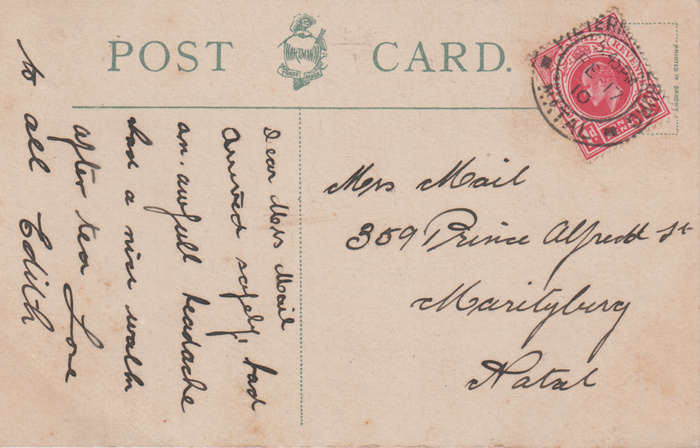 POST CARD.
HARTMANN
Dear Mrs Mail
Arrived safely, had
an. awfull headache
had a nice walk
after tea Love
to all Edith
Mrs Mail
359 Prince Alfred St
Maritzberg
Natal
REVENUE
NATAL
17
10